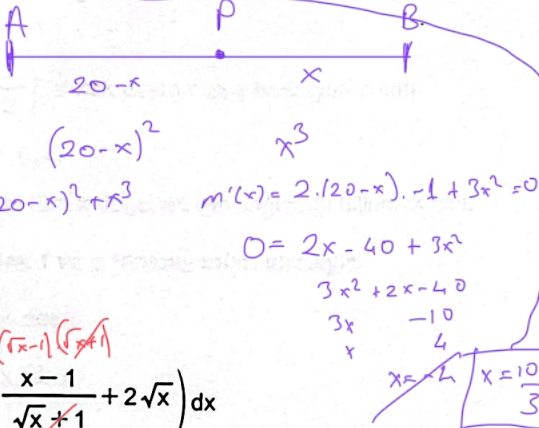 A P B
20-x x
(20-x)² x³
20-x)²+x³ m'(x)= 2.(20-x).-1+3x²=0
0= 2x-40+3x²
3x²+2x-40
3x -10
x 4
x=-4 x=10/3
(√x-1)(√x+1)
(x-1)/(√x+1) + 2√x) dx